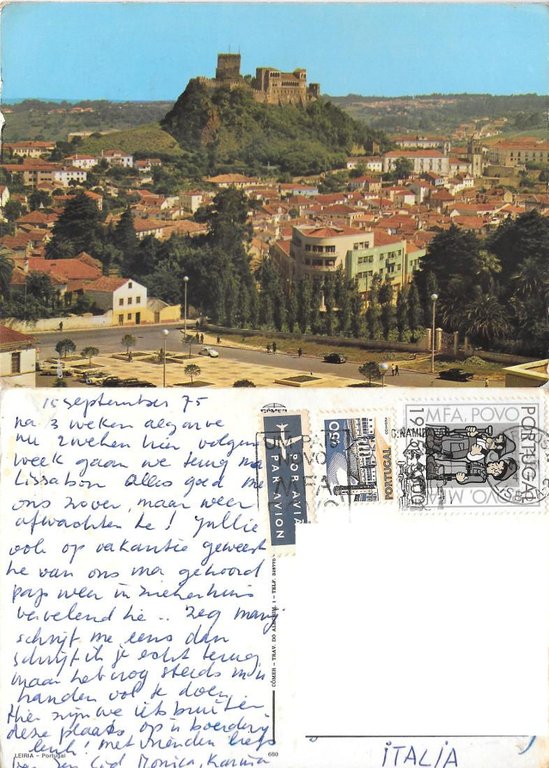 15 September 75
na 3 weken algarve
nu 2 weken hier volgende
week gaan we terug na
Lissabon alles goed me
ons zover, maar weer
afwachten he! Jullie
ook op vakantie geweest
he van ons ma gehoord
pap weer in ziekenhuis
vervelend he .. zeg
schrijf me eens dan
schrijf ik je echt terug
maar heb nog steeds m'n
handen vol te doen
Hier zijn we iets buiten
deze plaats op 'n boerderij
leuk! met vrienden liefs
Monica, Karina
LEIRIA — Portugal
680
PAR AVION
POR AVIÃO
$50
PORTUGAL
M.F.A. POVO
POVO M.F.A.
PORTUGAL
CÓMER - TRAV. DO ALECRIM, 1 - TELF.
ITALIA